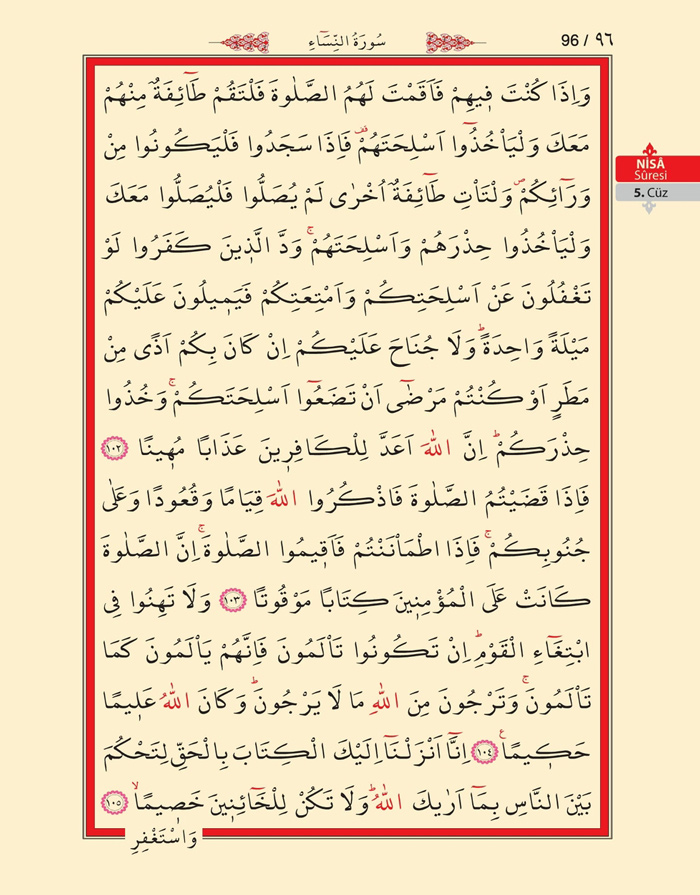 سُورَةُ النِّسَٓاءِ
96 / ٩٦
وَاِذَا كُنْتَ فٖيهِمْ فَاَقَمْتَ لَهُمُ الصَّلٰوةَ فَلْتَقُمْ طَٓائِفَةٌ مِنْهُمْ
مَعَكَ وَلْيَأْخُذُٓوا اَسْلِحَتَهُمْ۠ فَاِذَا سَجَدُوا فَلْيَكُونُوا مِنْ
وَرَٓائِكُمْۖ وَلْتَأْتِ طَٓائِفَةٌ اُخْرٰى لَمْ يُصَلُّوا فَلْيُصَلُّوا مَعَكَ
وَلْيَأْخُذُوا حِذْرَهُمْ وَاَسْلِحَتَهُمْۚ وَدَّ الَّذٖينَ كَفَرُوا لَوْ
تَغْفُلُونَ عَنْ اَسْلِحَتِكُمْ وَاَمْتِعَتِكُمْ فَيَمٖيلُونَ عَلَيْكُمْ
مَيْلَةً وَاحِدَةًؕ وَلَا جُنَاحَ عَلَيْكُمْ اِنْ كَانَ بِكُمْ اَذًى مِنْ
مَطَرٍ اَوْ كُنْتُمْ مَرْضٰٓى اَنْ تَضَعُٓوا اَسْلِحَتَكُمْۚ وَخُذُوا
حِذْرَكُمْؕ اِنَّ اللّٰهَ اَعَدَّ لِلْكَافِرٖينَ عَذَابًا مُهٖينًا ١٠٢
فَاِذَا قَضَيْتُمُ الصَّلٰوةَ فَاذْكُرُوا اللّٰهَ قِيَامًا وَقُعُودًا وَعَلٰى
جُنُوبِكُمْۚ فَاِذَا اطْمَأْنَنْتُمْ فَاَقٖيمُوا الصَّلٰوةَۚ اِنَّ الصَّلٰوةَ
كَانَتْ عَلَى الْمُؤْمِنٖينَ كِتَابًا مَوْقُوتًا ١٠٣ وَلَا تَهِنُوا فِى
ابْتِغَٓاءِ الْقَوْمِؕ اِنْ تَكُونُوا تَأْلَمُونَ فَاِنَّهُمْ يَأْلَمُونَ كَمَا
تَأْلَمُونَۚ وَتَرْجُونَ مِنَ اللّٰهِ مَا لَا يَرْجُونَؕ وَكَانَ اللّٰهُ عَلٖيمًا
حَكٖيمًاࣖ ١٠٤ اِنَّٓا اَنْزَلْنَٓا اِلَيْكَ الْكِتَابَ بِالْحَقِّ لِتَحْكُمَ
بَيْنَ النَّاسِ بِمَٓا اَرٰيكَ اللّٰهُؕ وَلَا تَكُنْ لِلْخَٓائِنٖينَ خَصٖيمًاۙ ١٠٥
وَاسْتَغْفِرِ
NİSÂ
Sûresi
5. Cüz